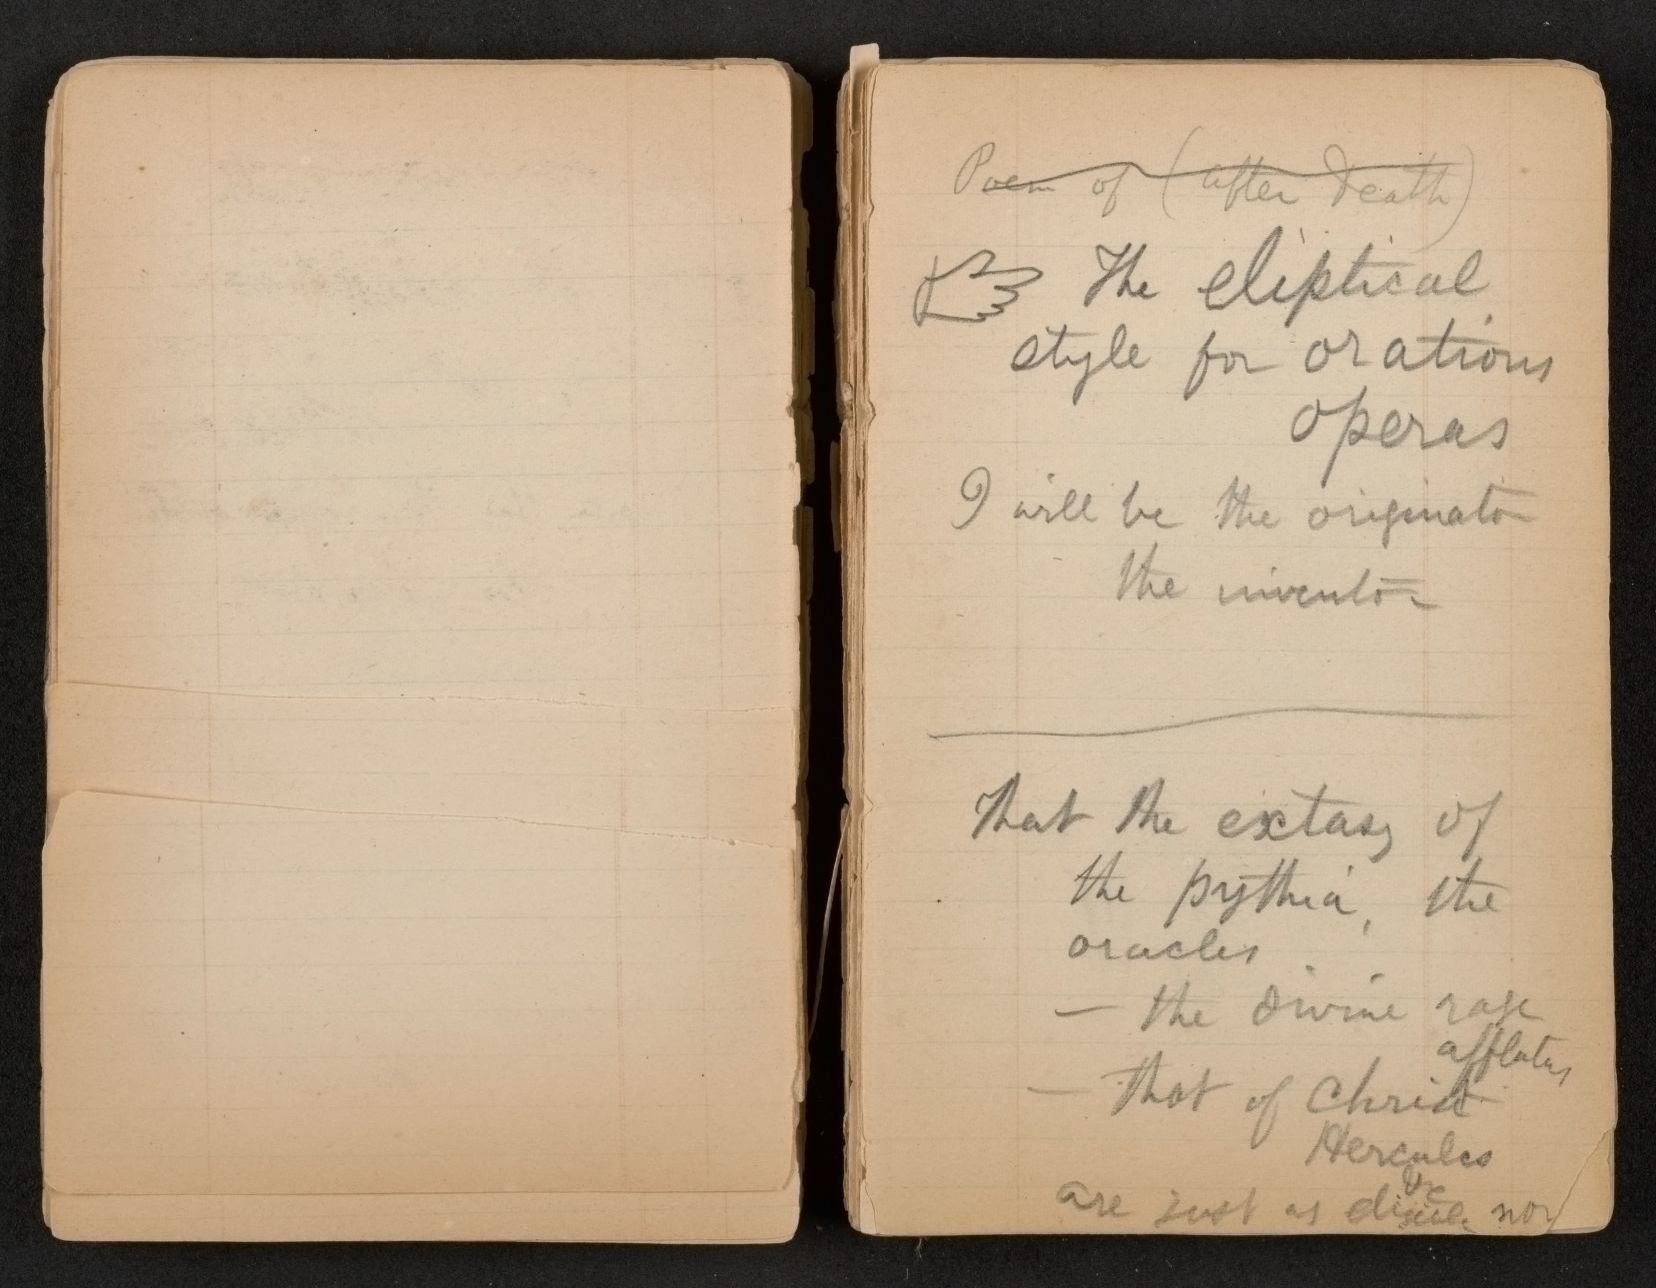 Poem of (after Death)
The eliptical
style for orations
operas
I will be the originator
the inventor
That the extasy of
the pythia, the
oracles
— the divine rage
afflatus
— that of Christ
Hercules
are just as now